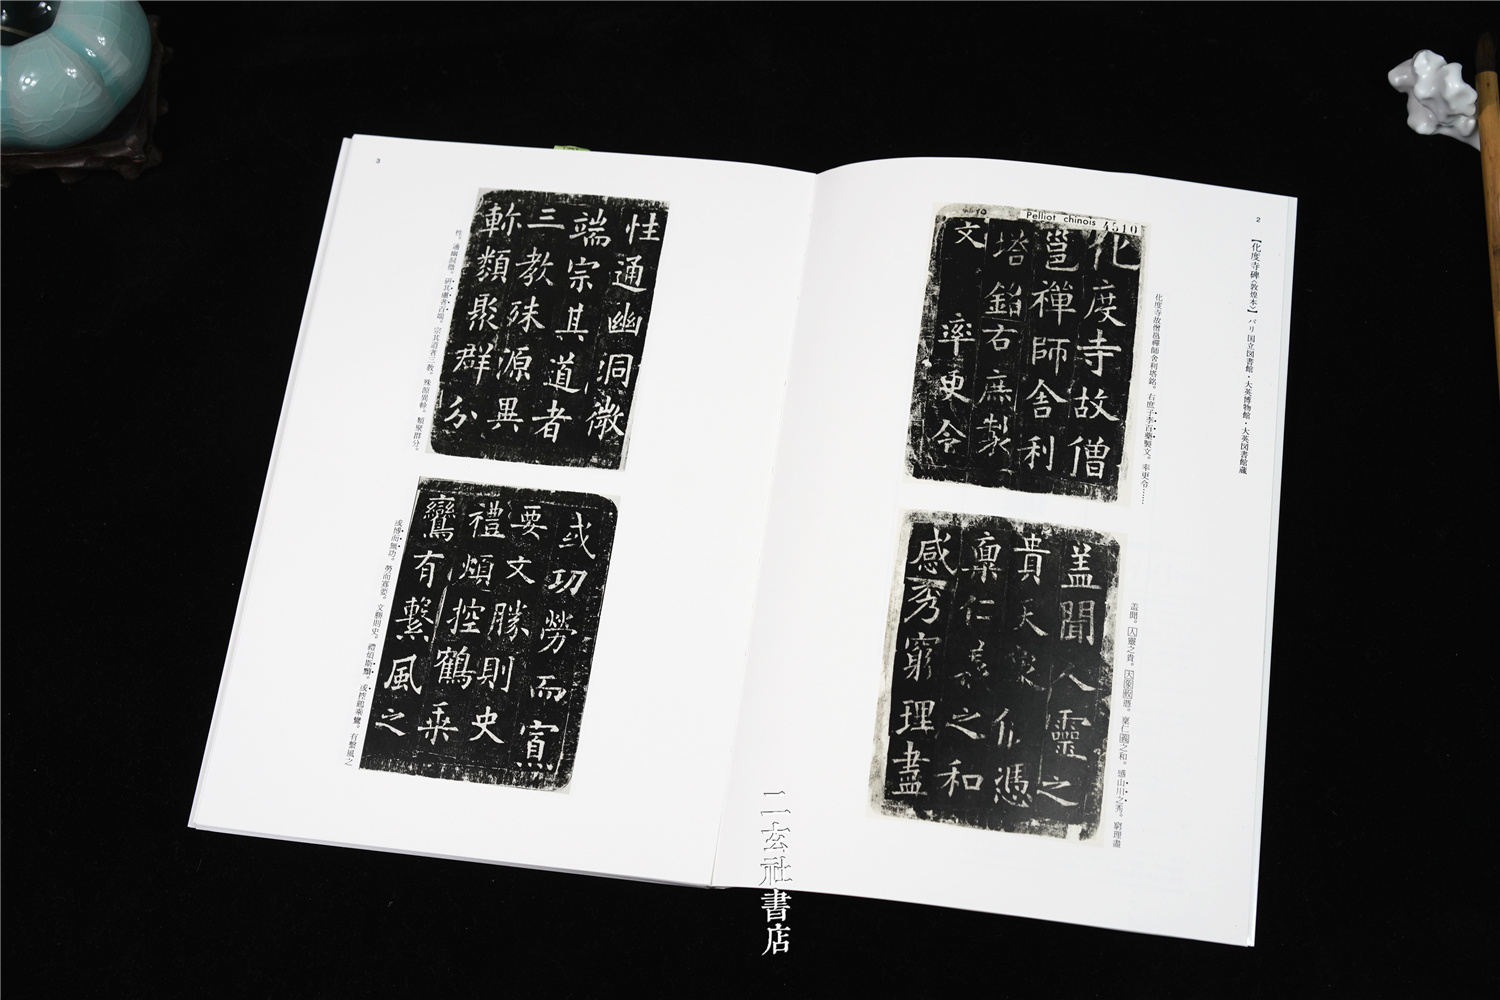 2
【化度寺碑〈敦煌本〉】 パリ国立図書館・大英博物館・大英図書館蔵
Pelliot chinois 4510
化度寺故僧
邕禪師舎利
塔銘右庶製
文 率更令
化度寺故僧邕禪師舍利塔銘。右庶子李百藥製文。率更令……
盖聞人靈之
貴天象攸憑
稟仁義之和
感秀窮理盡
盖聞。人靈之貴。天象攸憑。稟仁義之和。感山川之秀。窮理盡
3
性通幽洞微
端宗其道者
三教殊源異
軫類聚群分
性。通幽洞微。研其慮者百端。宗其道者三教。殊源異軫。類聚群分。
或功勞而寡
要文勝則史
禮煩控鶴乘
鸞有繫風之
或博而無功。勞而寡要。文勝則史。禮煩斯黷。或控鶴乘鸞。有繫風之
二玄社書店